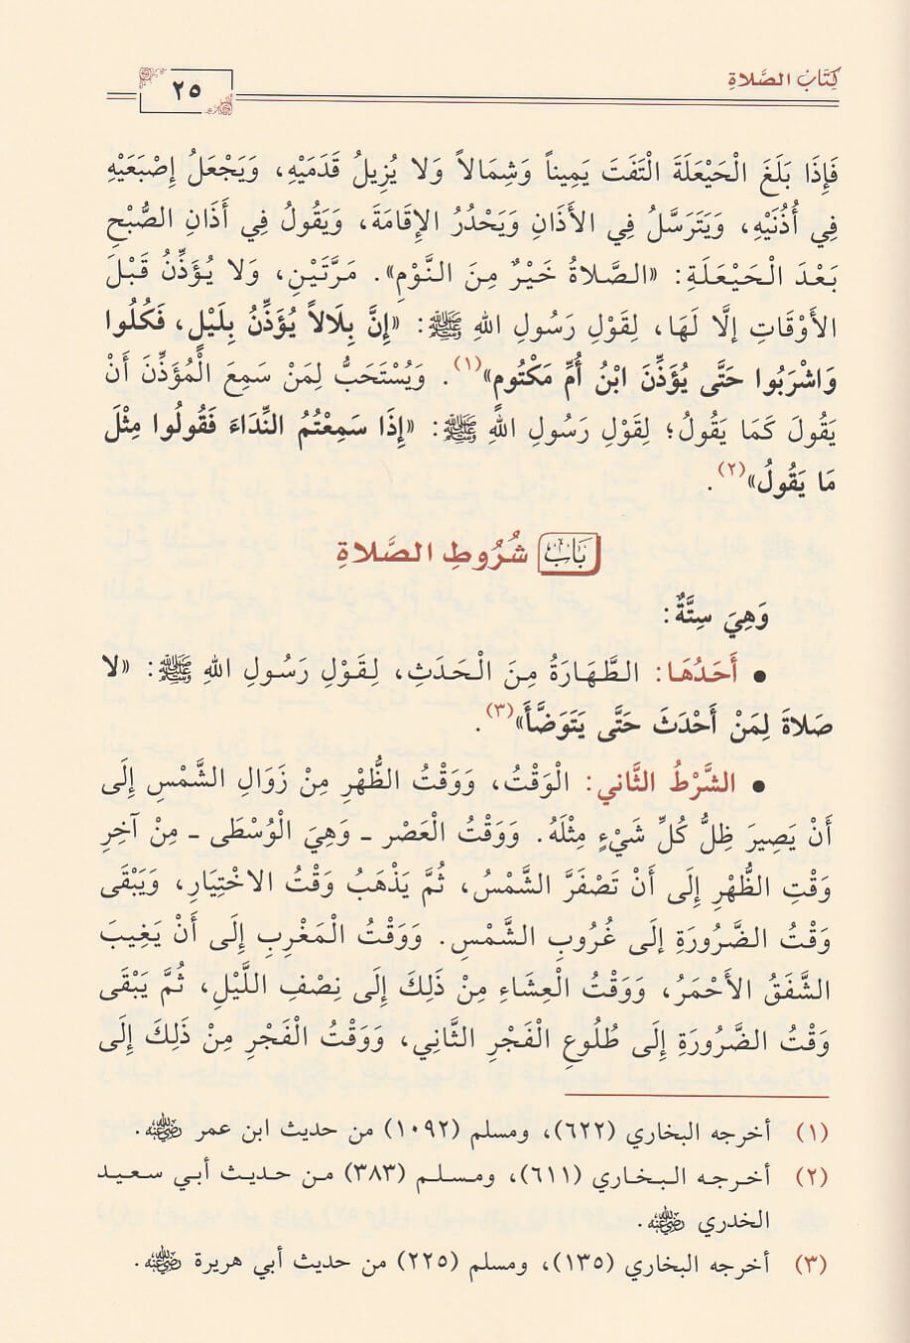 كِتَابُ الصَّلَاةِ
٢٥
فَإِذَا بَلَغَ الْحَيْعَلَةَ الْتَفَتَ يَمِيناً وَشِمَالاً وَلَا يُزِيلُ قَدَمَيْهِ، وَيَجْعَلُ إِصْبَعَيْهِ
فِي أُذُنَيْهِ، وَيَتَرَسَّلُ فِي الأَذَانِ وَيَحْدُرُ الإِقَامَةَ، وَيَقُولُ فِي أَذَانِ الصُّبْحِ
بَعْدَ الْحَيْعَلَةِ: «الصَّلاةُ خَيْرٌ مِنَ النَّوْمِ». مَرَّتَيْنِ، وَلا يُؤَذِّنُ قَبْلَ
الأَوْقَاتِ إلَّا لَهَا، لِقَوْلِ رَسُولِ اللهِ ﷺ: «إِنَّ بِلَالاً يُؤَذِّنُ بِلَيْلٍ، فَكُلُوا
وَاشْرَبُوا حَتَّى يُؤَذِّنَ ابْنُ أُمِّ مَكْتُومٍ»(١). وَيُسْتَحَبُّ لِمَنْ سَمِعَ الْمُؤَذِّنَ أَنْ
يَقُولَ كَمَا يَقُولُ؛ لِقَوْلِ رَسُولِ اللهِ ﷺ: «إِذَا سَمِعْتُمُ النِّدَاءَ فَقُولُوا مِثْلَ
مَا يَقُولُ»(٢).
بَابُ شُرُوطِ الصَّلاةِ
وَهِيَ سِتَّةٌ:
• أَحَدُهَا: الطَّهَارَةُ مِنَ الْحَدَثِ، لِقَوْلِ رَسُولِ اللهِ ﷺ: «لا
صَلاةَ لِمَنْ أَحْدَثَ حَتَّى يَتَوَضَّأَ»(٣).
• الشَّرْطُ الثَّاني: الْوَقْتُ، وَوَقْتُ الظُّهْرِ مِنْ زَوَالِ الشَّمْسِ إِلَى
أَنْ يَصِيرَ ظِلُّ كُلِّ شَيْءٍ مِثْلَهُ. وَوَقْتُ الْعَصْرِ ـ وَهِيَ الْوُسْطَى ـ مِنْ آخِرِ
وَقْتِ الظُّهْرِ إِلَى أَنْ تَصْفَرَّ الشَّمْسُ، ثُمَّ يَذْهَبُ وَقْتُ الاخْتِيَارِ، وَيَبْقَى
وَقْتُ الضَّرُورَةِ إلَى غُرُوبِ الشَّمْسِ. وَوَقْتُ الْمَغْرِبِ إِلَى أَنْ يَغِيبَ
الشَّفَقُ الأَحْمَرُ، وَوَقْتُ الْعِشَاءِ مِنْ ذَلِكَ إِلَى نِصْفِ اللَّيْلِ، ثُمَّ يَبْقَى
وَقْتُ الضَّرُورَةِ إِلَى طُلُوعِ الْفَجْرِ الثَّانِي، وَوَقْتُ الْفَجْرِ مِنْ ذَلِكَ إِلَى
(١) أخرجه البخاري (٦٢٢)، ومسلم (١٠٩٢) من حديث ابن عمر رضي الله عنه.
(٢) أخرجه البخاري (٦١١)، ومسلم (٣٨٣) من حديث أبي سعيد
الخدري رضي الله عنه.
(٣) أخرجه البخاري (١٣٥)، ومسلم (٢٢٥) من حديث أبي هريرة رضي الله عنه.